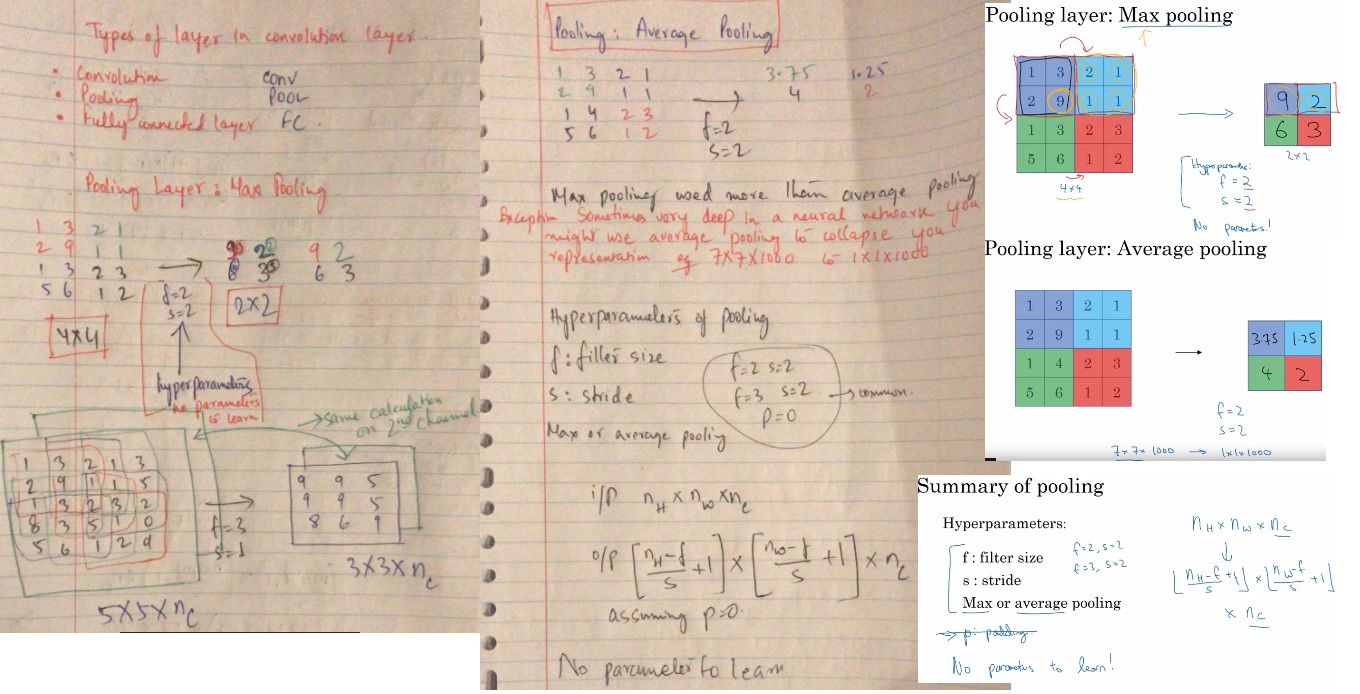 Types of layer in convolution layer.
• Convolution CONV
• Pooling POOL
• Fully connected layer FC.
Pooling Layer: Max Pooling
1 3 2 1
2 9 1 1
1 3 2 3
5 6 1 2
4x4
f=2
s=2
9 2
6 3
2x2
hyperparameters
no parameters
to learn
→ same calculation
on 2nd channel
1 3 2 1 3
2 9 1 1 5
1 3 2 3 2
8 3 5 1 0
5 6 1 2 9
f=3
s=1
9 9 5
9 9 5
8 6 9
5x5xnc
3x3xnc
Pooling: Average Pooling
1 3 2 1
2 9 1 1
1 4 2 3
5 6 1 2
f=2
s=2
3.75 1.25
4 2
Max pooling used more than average pooling
Exception Sometimes very deep in a neural network you
might use average pooling to collapse you
representation eg 7x7x1000 to 1x1x1000
Hyperparameters of pooling
f: filter size
s: stride
Max or average pooling
f=2 s=2
f=3 s=2
p=0
→ common.
i/p nH x nW x nc
o/p [nH-f/s +1] x [nW-f/s +1] x nc
assuming p=0.
No parameter to learn
Pooling layer: Max pooling
1 3 2 1
2 9 1 1
1 3 2 3
5 6 1 2
4x4
9 2
6 3
2x2
Hyperparameters:
f = 2
s = 2
No parameters!
Pooling layer: Average pooling
1 3 2 1
2 9 1 1
1 4 2 3
5 6 1 2
3.75 1.25
4 2
f=2
s=2
7x7x1000 → 1x1x1000
Summary of pooling
Hyperparameters:
f : filter size
s : stride
Max or average pooling
f=2, s=2
f=3, s=2
→ p: padding.
No parameters to learn!
nH x nW x nc
↓
⌊nH-f/s +1⌋ x ⌊nW-f/s +1⌋
x nc